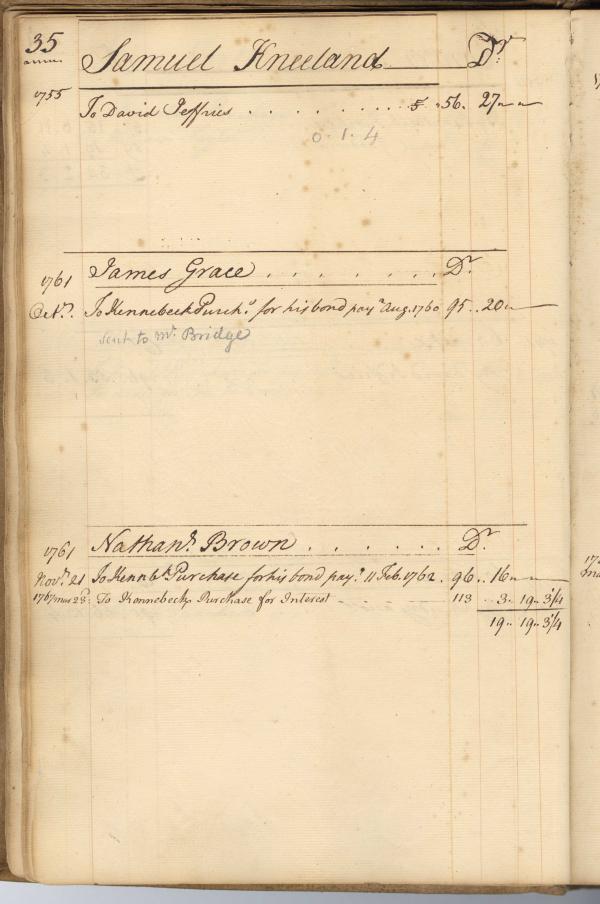 35
Samuel Kneeland Dr.
1755
To David Jeffries . . . . . . . . . 5 56. 27
0. 1. 4
1761 James Grace . . . . . . . Dr.
Octr. To Kennebeck Purchs. for his bond paye. Aug. 1760 95 .. 20
Sent to Mr. Bridge
1761 Nathanl. Brown . . . . . . Dr.
Novr. 21 To Kennbk. Purchase for his bond paye. 11 Feb. 1762 . 96 .. 16
1767 mar 23d: To Kennebeck Purchase for Interest 113 3. 19. 3 1/4
19. 19. 3 1/4